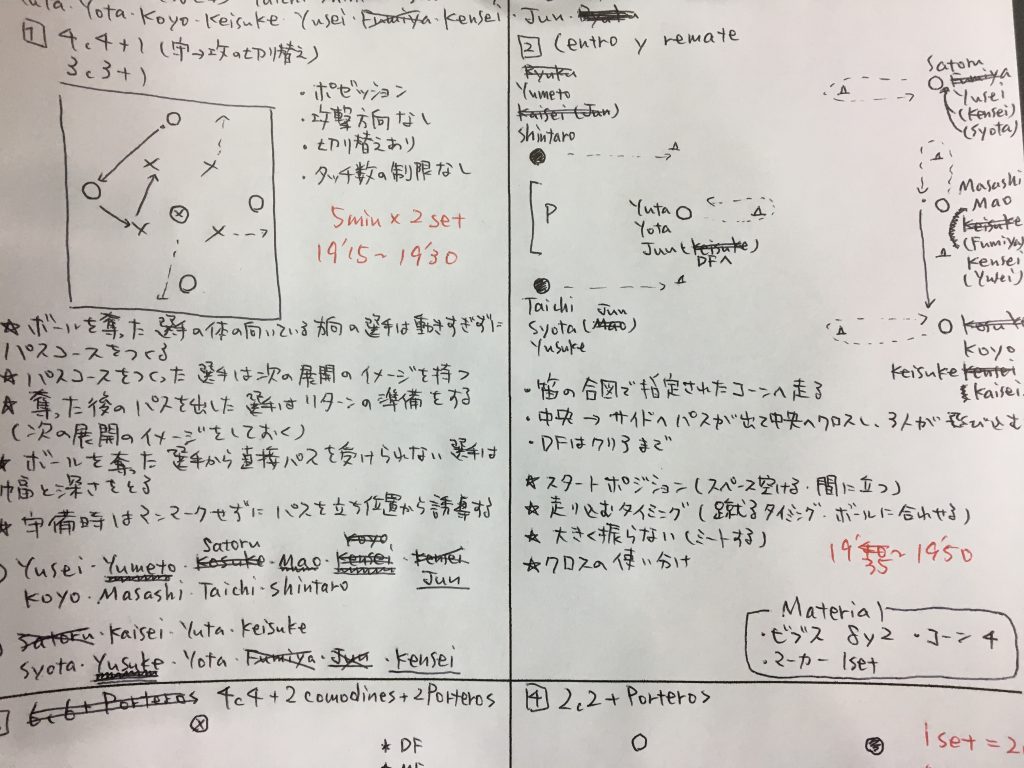 Yuta. Yota・Koyo・Keisuke・Yusei・Fumiya・Kensei・Jun・
1 4c4+1 (守→攻の切り替え)
3c3+1
・ポゼッション
・攻撃方向なし
・切り替えあり
・タッチ数の制限なし
5min x 2set
19'15~19'30
☆ボールを奪った選手の体の向いている方向の選手は動きすぎずに
パスコースをつくる
☆パスコースをつくった選手は次の展開のイメージを持つ
☆奪った後のパスを出した選手はリターンの準備をする
(次の展開のイメージをしておく)
☆ボールを奪った選手から直接パスを受けられない選手は
幅と深さをとる
☆守備時はマンマークせずにパスを立ち位置から誘導する
Satoru Koyo
Yusei・Yumeto・Kosuke・Mao・Kensei・Kensei
Jun
Koyo・Masashi・Taichi・Shintaro
Satoru・Kaisei・Yuta・Keisuke
Syota・Yusuke・Yota・Fumiya・Jun・Kensei
2 Centro y remate
Ryuka
Yumeto
Kaisei(Jun)
Shintaro
P
Yuta
Yota
Jun(Keisuke)
DFへ
Taichi
Jun
Syota(Mao)
Yusuke
Satoru
Fumiya
Yusei
(Kensei)
(Syota)
Masashi
Mao
Keisuke
(Fumiya)
Kensei
(Yusei)
Kosuke
Koyo
Keisuke Kensei
Kaisei
・笛の合図で指定されたコーンへ走る
・中央→サイドへパスが出て中央へクロスし、3人が飛び込む
・DFはクリアまで
☆スタートポジション(スペース空ける・間に立つ)
☆走り込むタイミング(蹴るタイミング・ボールに合わせる)
☆大きく振らない(ミートする)
☆クロスの使い分け
19'40~19'50
35
Material
・ビブス 8y2 ・コーン 4
・マーカー 1set
6c6+Porteros 4c4+2comodines+2Porteros
* DF
* MF
4 2c2+Porteros
1set=2